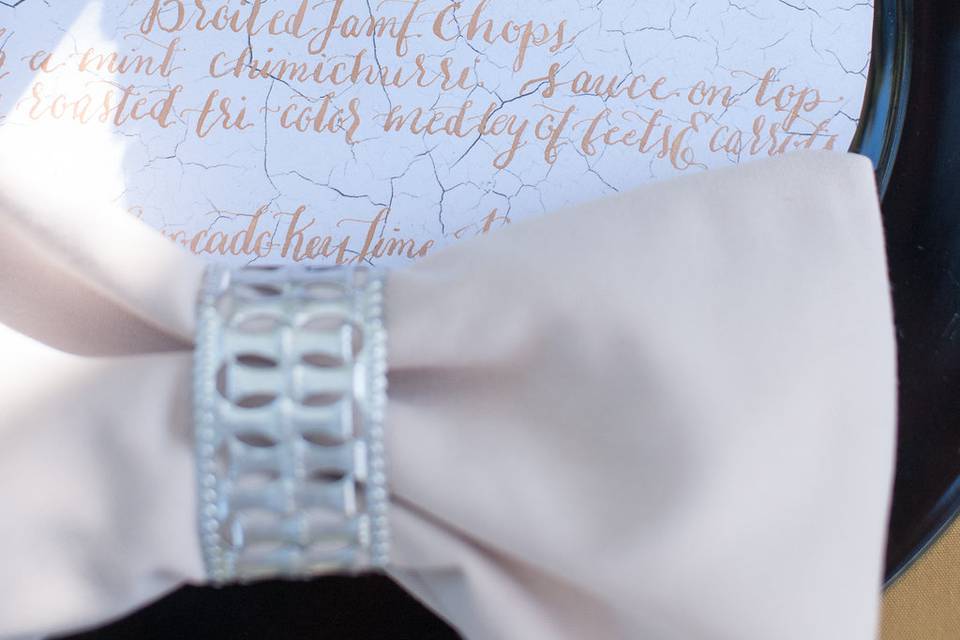 Broiled Lamb Chops
a mint chimichurri sauce on top
roasted tri-color medley of beets & carrots
Avocado Key Lime